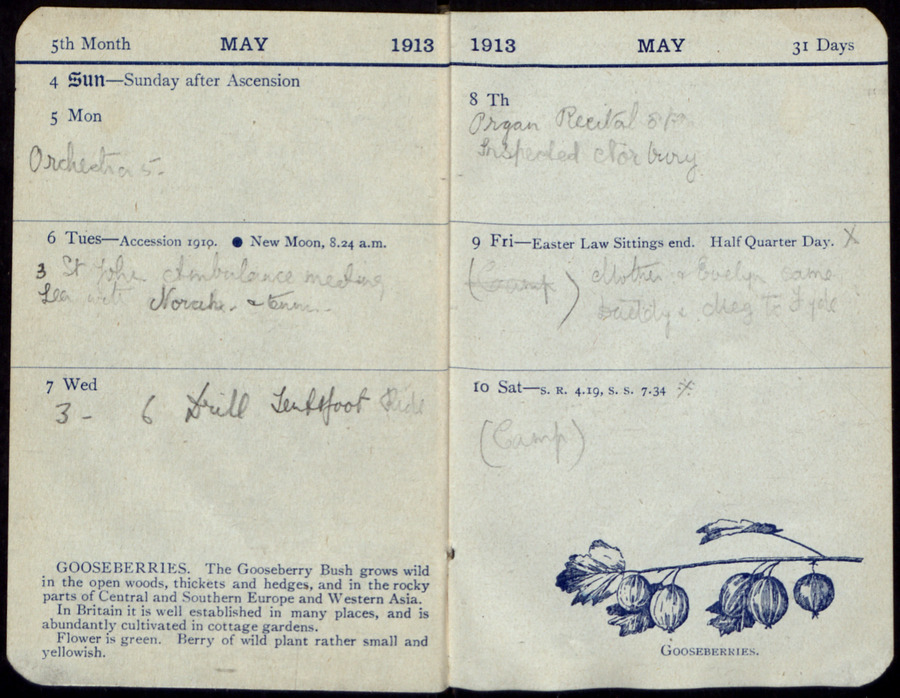 5th Month MAY 1913
4 Sun—Sunday after Ascension
5 Mon
Orchestra 5-
6 Tues—Accession 1910. ● New Moon, 8.24 a.m.
3 St John Ambulance meeting
Tea with Norah. &
7 Wed
3- 6 Drill Tenderfoot
GOOSEBERRIES. The Gooseberry Bush grows wild
in the open woods, thickets and hedges, and in the rocky
parts of Central and Southern Europe and Western Asia.
In Britain it is well established in many places, and is
abundantly cultivated in cottage gardens.
Flower is green. Berry of wild plant rather small and
yellowish.
1913 MAY 31 Days
8 Th
Organ Recital
Inspected Norbury
9 Fri—Easter Law Sittings end. Half Quarter Day. X
(Camp) Mother & Evelyn came
Daddy & Meg to Hyde
10 Sat—S. R. 4.19, S. S. 7.34
(Camp)
GOOSEBERRIES.